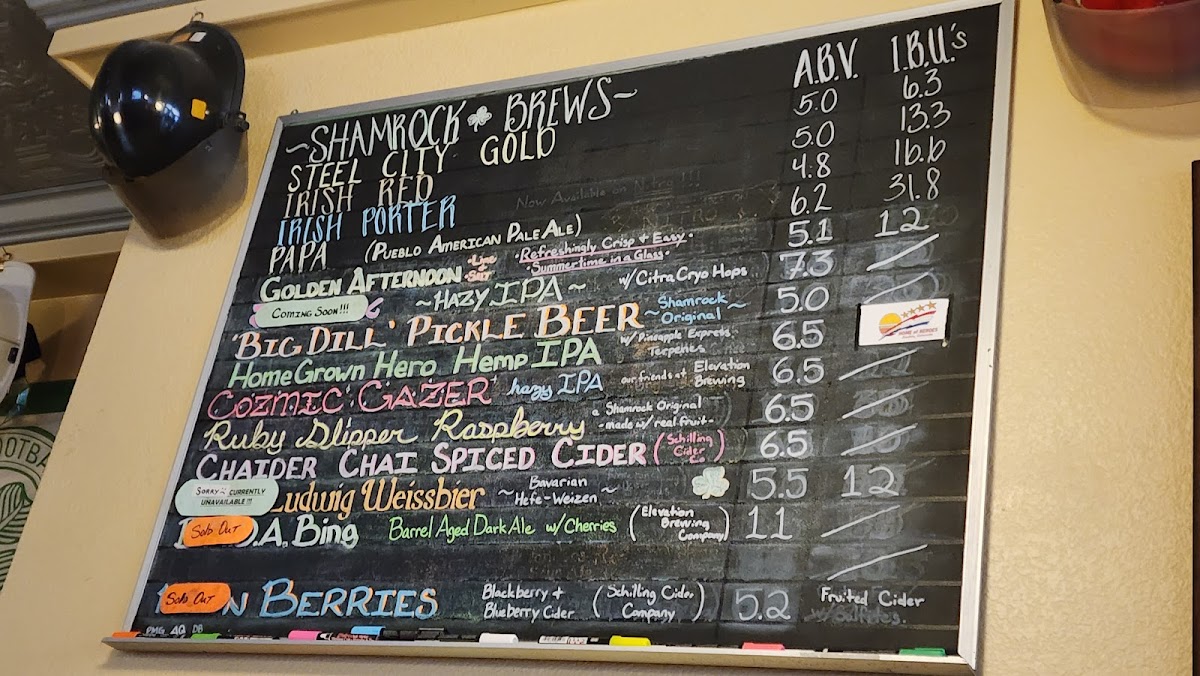 ~SHAMROCK BREWS~ A.B.V. I.B.U.'s
STEEL CITY GOLD 5.0 6.3
IRISH RED 5.0 13.3
IRISH PORTER Now Available on Nitro!!! 4.8 16.6
PAPA (PUEBLO AMERICAN PALE ALE) 6.2 31.8
GOLDEN AFTERNOON •Refreshingly Crisp & Easy• 5.1 12
•Summertime in a Glass•
COMING SOON!!! ~HAZY IPA~ w/ Citra Cryo Hops 7.3
'BIG DILL' PICKLE BEER ~Shamrock Original~ 5.0
HomeGrown Hero Hemp IPA w/ Pineapple Express Terpenes 6.5
HOME OF HEROES
COZMIC GAZER hazy IPA our friends at Elevation Brewing 6.5
Ruby Slipper Raspberry a Shamrock Original -made w/ real fruit- 6.5
CHAIDER CHAI SPICED CIDER (Schilling Cider Co) 6.5
SORRY CURRENTLY UNAVAILABLE!!! Ludwig Weissbier ~Bavarian Hefe-Weizen~ 5.5 12
Sold Out .A. Bing Barrel Aged Dark Ale w/ Cherries (Elevation Brewing Company) 11
Sold Out N BERRIES Blackberry & Blueberry Cider (Schilling Cider Company) 5.2 Fruited Cider